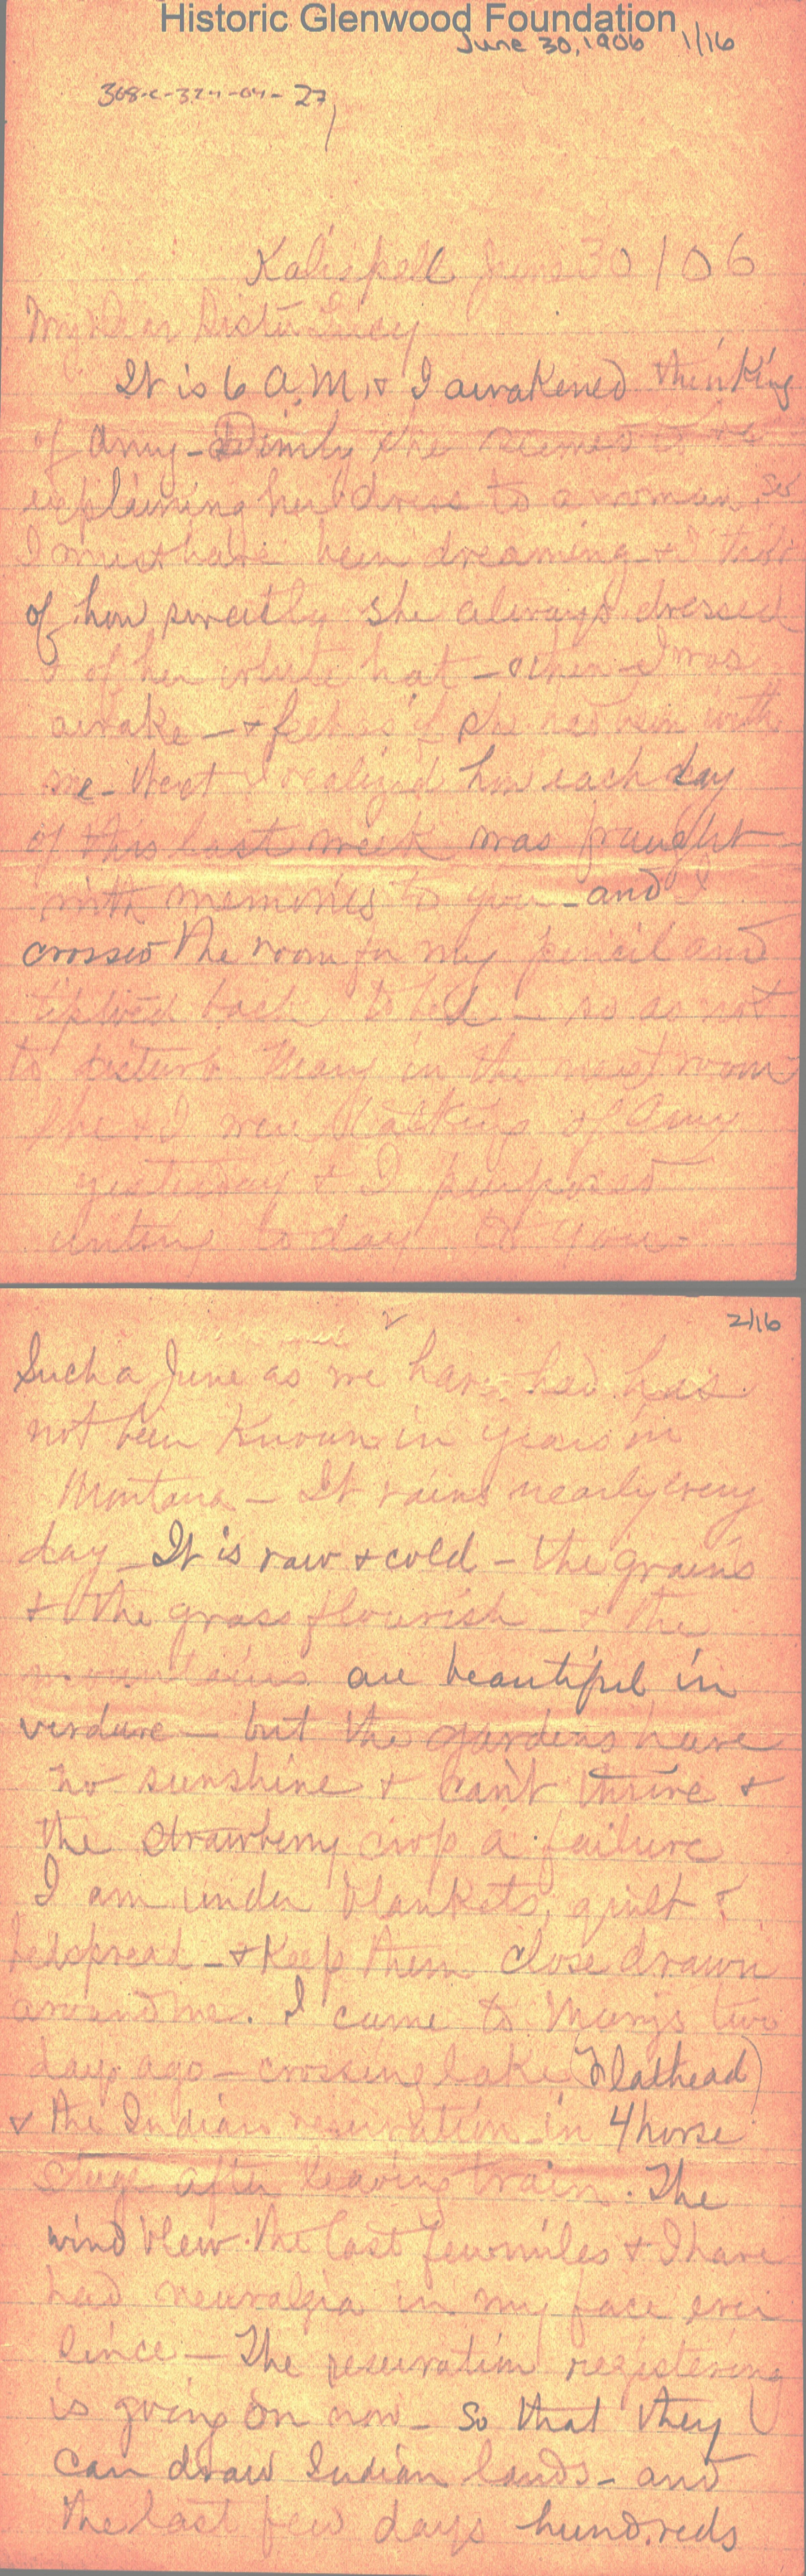 Historic Glenwood Foundation
June 30, 1906 1/16
368-c-324-04-27
Kalispell June 30/06
My Dear Sister Lucy
It is 6 A.M. & I awakened thinking
of Amy - Dimly she seemed to be
explaining her dress to a woman. So
I must have been dreaming & I tho't
of how sweetly she always dressed
& of her white hat - & then I was
awake - & felt as if she had been with
me - Next I realized how each day
of this last week was fraught
with memories to you - and I
crossed the room for my pencil and
tiptoed back to bed - so as not
to disturb Mary in the next room
She & I were talking of Amy
yesterday & I purposed
writing today to you -
2 2/16
Such a June as we have had has
not been known in years in
Montana - It rains nearly every
day - It is raw & cold - the grains
& the grass flourish - & the
mountains are beautiful in
verdure - but the gardens have
no sunshine & can't thrive &
the strawberry crop a failure
I am under blankets, quilt &
bedspread - & keep them close drawn
around me. I came to Mary's two
days ago - crossing lake (Flathead)
& the Indian reservation in 4 horse
stage after leaving train. The
wind blew the last few miles & I have
had neuralgia in my face ever
since - The reservation registering
is going on now - so that they
can draw Indian lands - and
the last few days hundreds